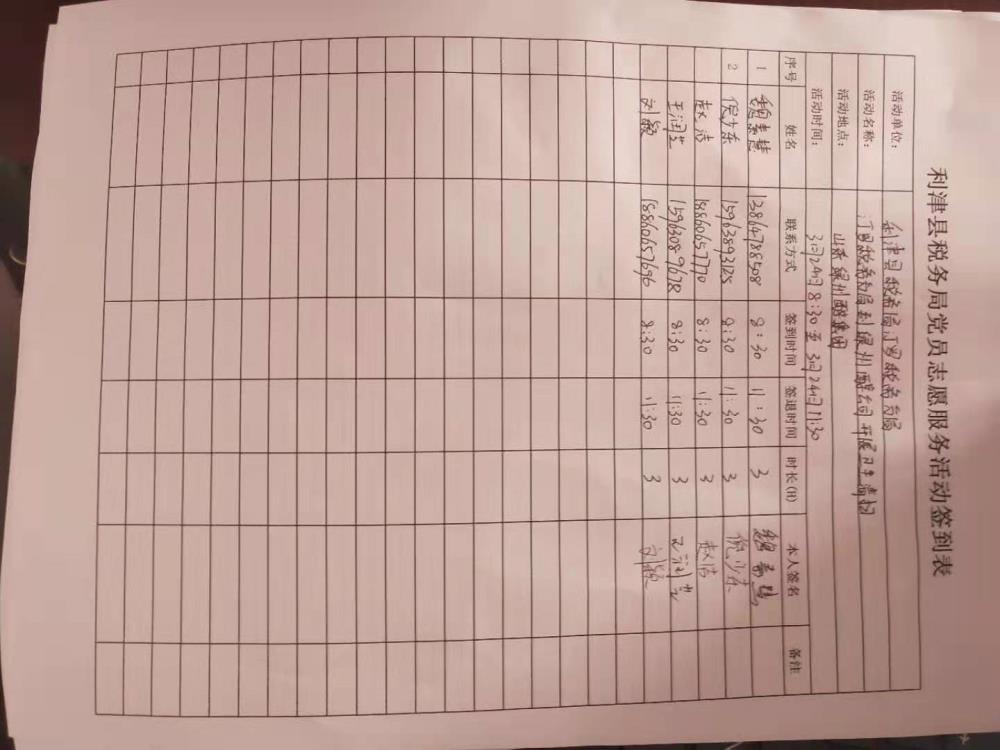 利津县税务局党员志愿服务活动签到表
活动单位: 利津县税务局汀罗税务分局
活动名称: 汀罗税务分局到绿洲醋公司开展卫生清扫
活动地点: 山东绿洲醋集团
活动时间: 3月24日8:30至3月24日11:30
序号 姓名 联系方式 签到时间 签退时间 时长(H) 本人签名 备注
1 13864788508 8:30 11:30 3
2 倪少东 15963893125 8:30 11:30 3 倪少东
赵洁 18860657770 8:30 11:30 3 赵洁
王润兰 15963089678 8:30 11:30 3 王润兰
刘颖 18860657696 8:30 11:30 3 刘颖